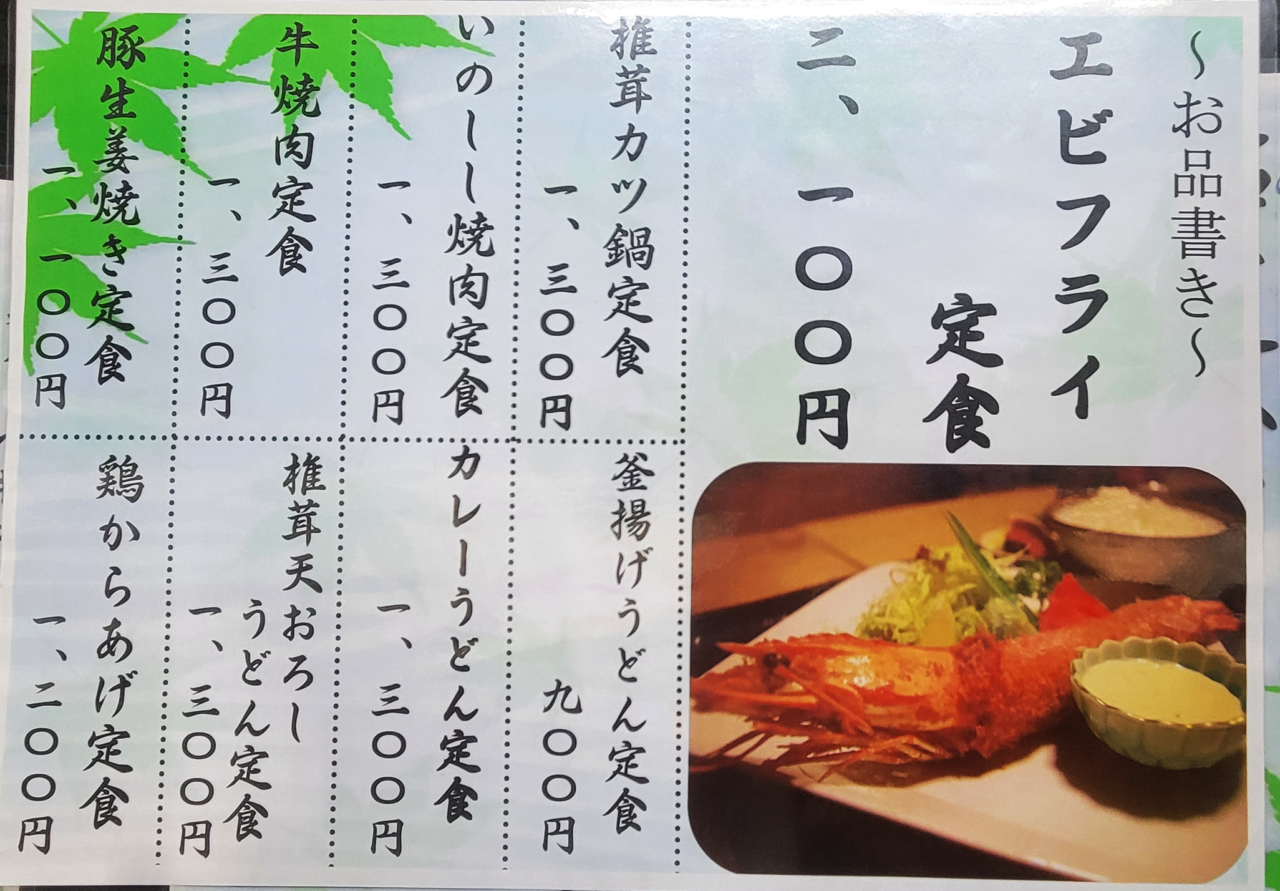 ～お品書き～
エビフライ
定食
二、一〇〇円
椎茸カツ鍋定食
一、三〇〇円
いのしし焼肉定食
一、三〇〇円
牛焼肉定食
一、三〇〇円
豚生姜焼き定食
一、一〇〇円
釜揚げうどん定食
九〇〇円
カレーうどん定食
一、三〇〇円
椎茸天おろし
うどん定食
一、三〇〇円
鶏からあげ定食
一、二〇〇円